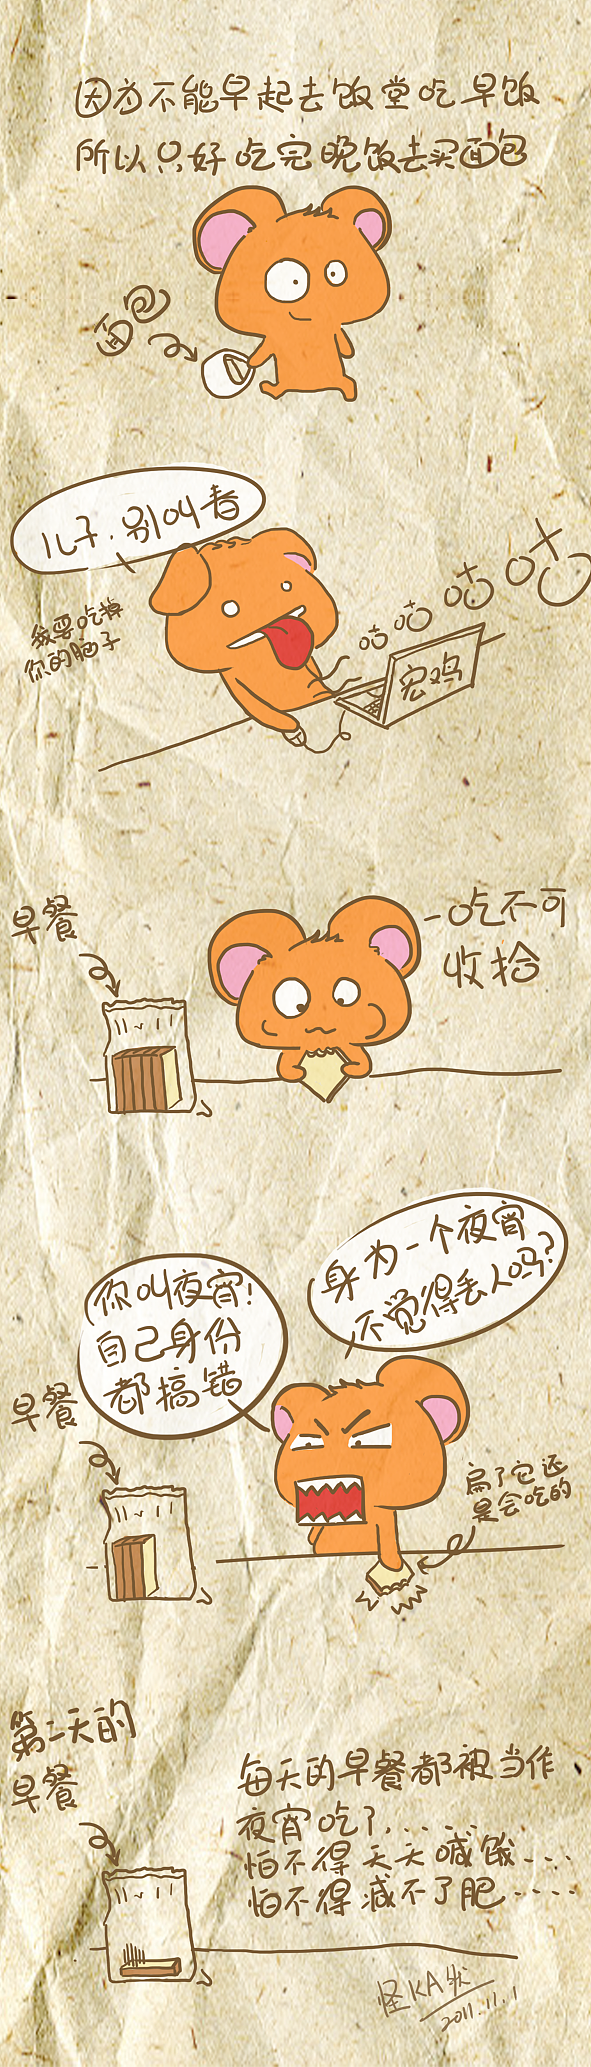 因为不能早起去饭堂吃早饭
所以只好吃完晚饭去买面包
面包
儿子.别叫春
我要吃掉
你的肥子
咕 咕 咕 咕
宏鸡
早餐
一吃不可
收拾
身为一个夜宵
不觉得丢人吗?
你叫夜宵!
自己身份
都搞错
早餐
扁了它还
是会吃的
第二天的
早餐
每天的早餐都被当作
夜宵吃了......
怕不得天天喊饿....
怕不得减不了肥.....
怪KA
2011.11.1